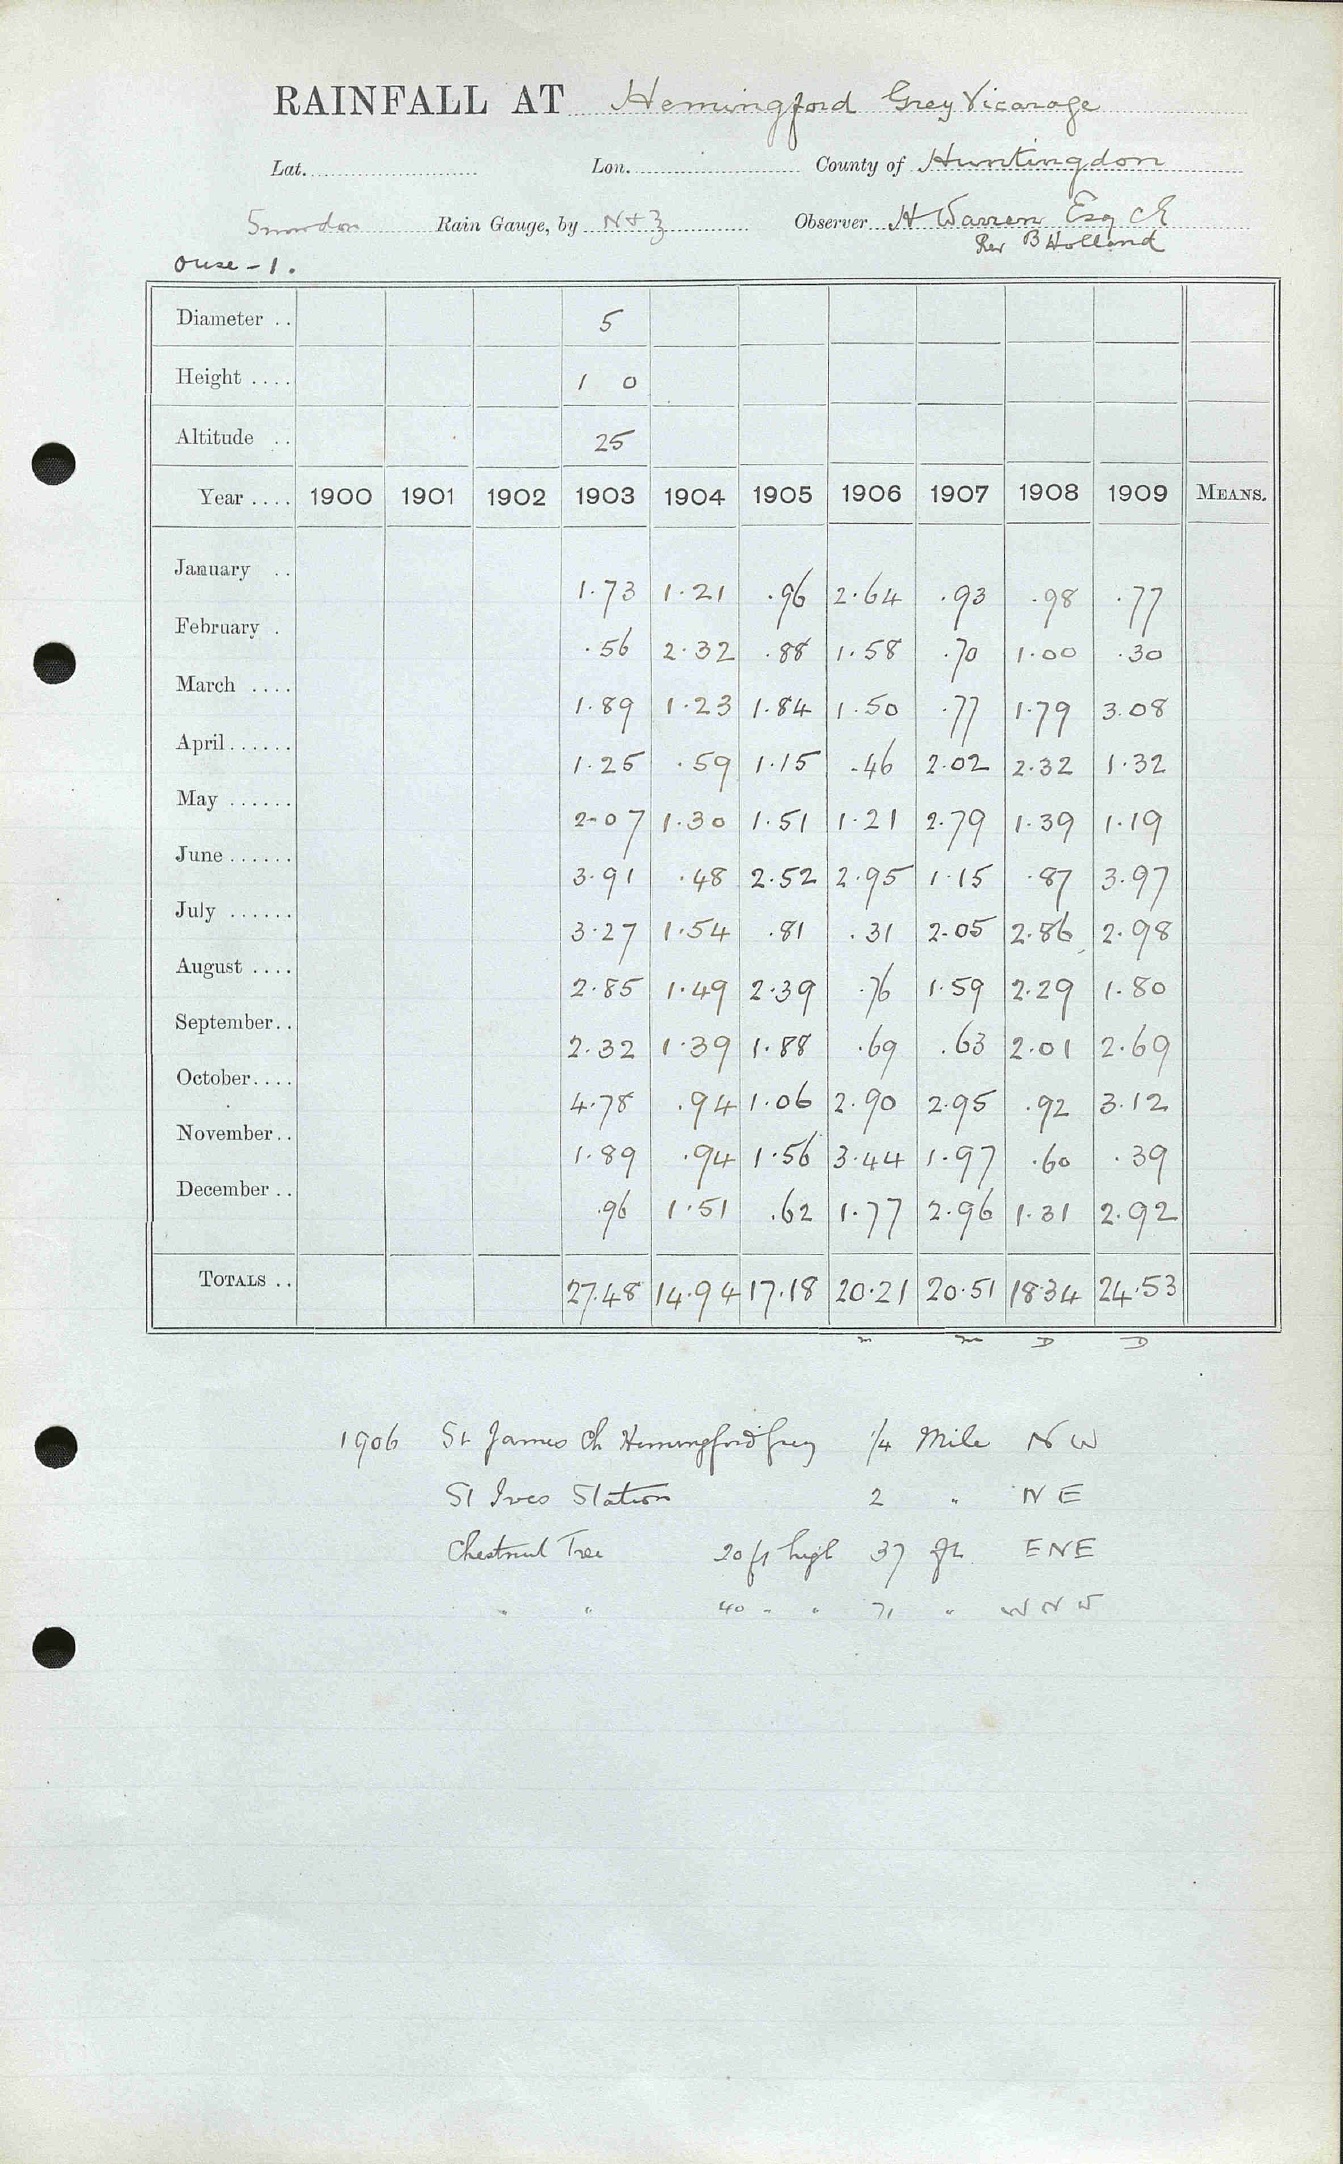 RAINFALL AT Hemingford Grey Vicarage
Lat. Lon. County of Huntingdon
Snowdon Rain Gauge, by N & Z Observer H Warren Esq CE
Rev B Holland
Ouse - 1.
Diameter .. 5
Height .... 1 0
Altitude .. 25
Year .... 1900 1901 1902 1903 1904 1905 1906 1907 1908 1909 MEANS.
January .. 1.73 1.21 .96 2.64 .93 .98 .77
February . .56 2.32 .88 1.58 .70 1.00 .30
March .... 1.89 1.23 1.84 1.50 .77 1.79 3.08
April ...... 1.25 .59 1.15 .46 2.02 2.32 1.32
May ...... 2.07 1.30 1.51 1.21 2.79 1.39 1.19
June ...... 3.91 .48 2.52 2.95 1.15 .87 3.97
July ...... 3.27 1.54 .81 .31 2.05 2.86 2.98
August .... 2.85 1.49 2.39 .76 1.59 2.29 1.80
September.. 2.32 1.39 1.88 .69 .63 2.01 2.69
October.... 4.78 .94 1.06 2.90 2.95 .92 3.12
November.. 1.89 .94 1.56 3.44 1.97 .60 .39
December .. .96 1.51 .62 1.77 2.96 1.31 2.92
TOTALS .. 27.48 14.94 17.18 20.21 20.51 18.34 24.53
m m D D
1906 St James Ch Hemingford Grey 1/4 Mile NW
St Ives Station 2 " NE
Chestnut Tree 20 ft high 37 ft ENE
" " 40 " " 71 " WNW